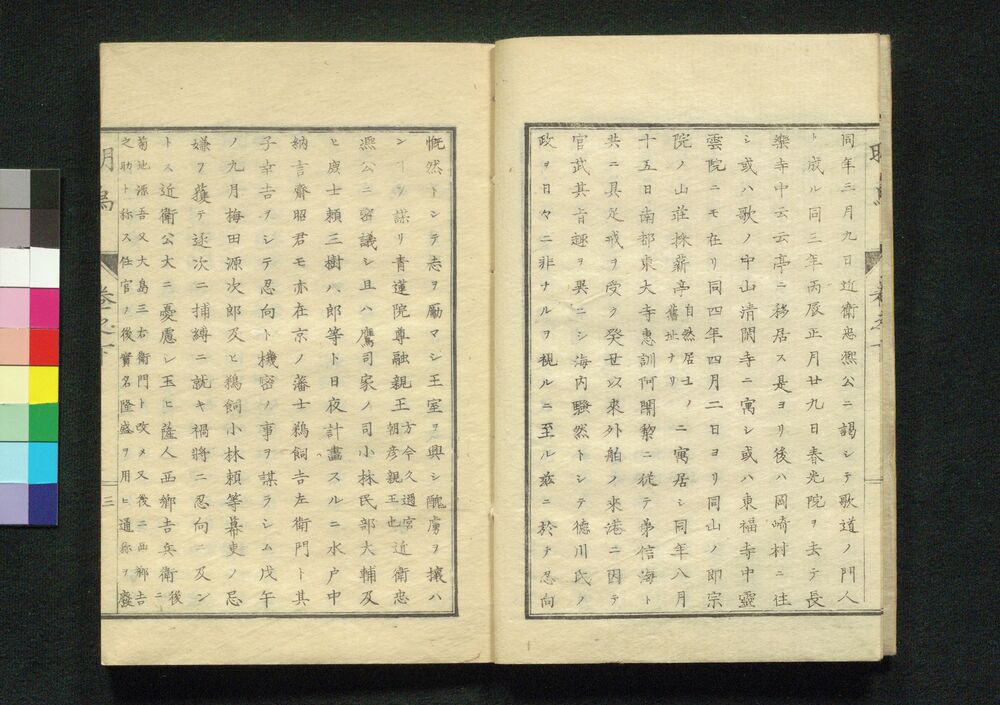 同年三月九日近衛忠凞公ニ謁シテ歌道ノ門人
ト成ル同三年丙辰正月廿九日春光院ヲ去テ長
樂寺中云云亭ニ移居ス是ヨリ後ハ岡崎村ニ住
シ或ハ歌ノ中山清閑寺ニ寓シ或ハ東福寺中靈
雲院ニモ在リ同四年四月二日ヨリ同山ノ即宗
院ノ山莊採薪亭自然居士ノ舊址ナリニ寓居シ同年八月
十五日南都東大寺惠訓阿闍黎ニ從テ弟信海ト
共ニ具足戒ヲ受ク癸丑以來外舶ノ來港ニ因テ
官武其旨趣ヲ異ニシ海内騷然トシテ德川氏ノ
政ヲ日々ニ非ナルヲ視ルニ至ル茲ニ於テ忍向
慨然トシテ志ヲ勵マシ王室ヲ興シ醜虜ヲ攘ハ
ン ヿヲ謀リ青蓮院尊融親王方今久邇宮朝彦親王也近衛忠
凞公ニ密議シ且ハ鷹司家ノ司小林民部大輔及
ヒ處士頼三樹八郎等ト日夜計畫スルニ水户中
納言齊昭君モ亦在京ノ藩士鵜飼吉左衛門ト其
子幸吉ヲシテ忍向ト機密ノ事ヲ謀ラシム戊午
ノ九月梅田源次郎及ヒ鵜飼小林頼等幕吏ノ忌
嫌ヲ蒦テ逐次ニ捕縛ニ就キ禍將ニ忍向ニ及ン
トス近衛公大ニ憂慮シ玉ヒ薩人西鄕吉兵衛後ニ
菊池源吾又大島三右衛門ト改メ又後ニ西鄕吉
之助ト称ス任官ノ後實名隆盛ヲ用ヒ通称ヲ癈
卷之下
三